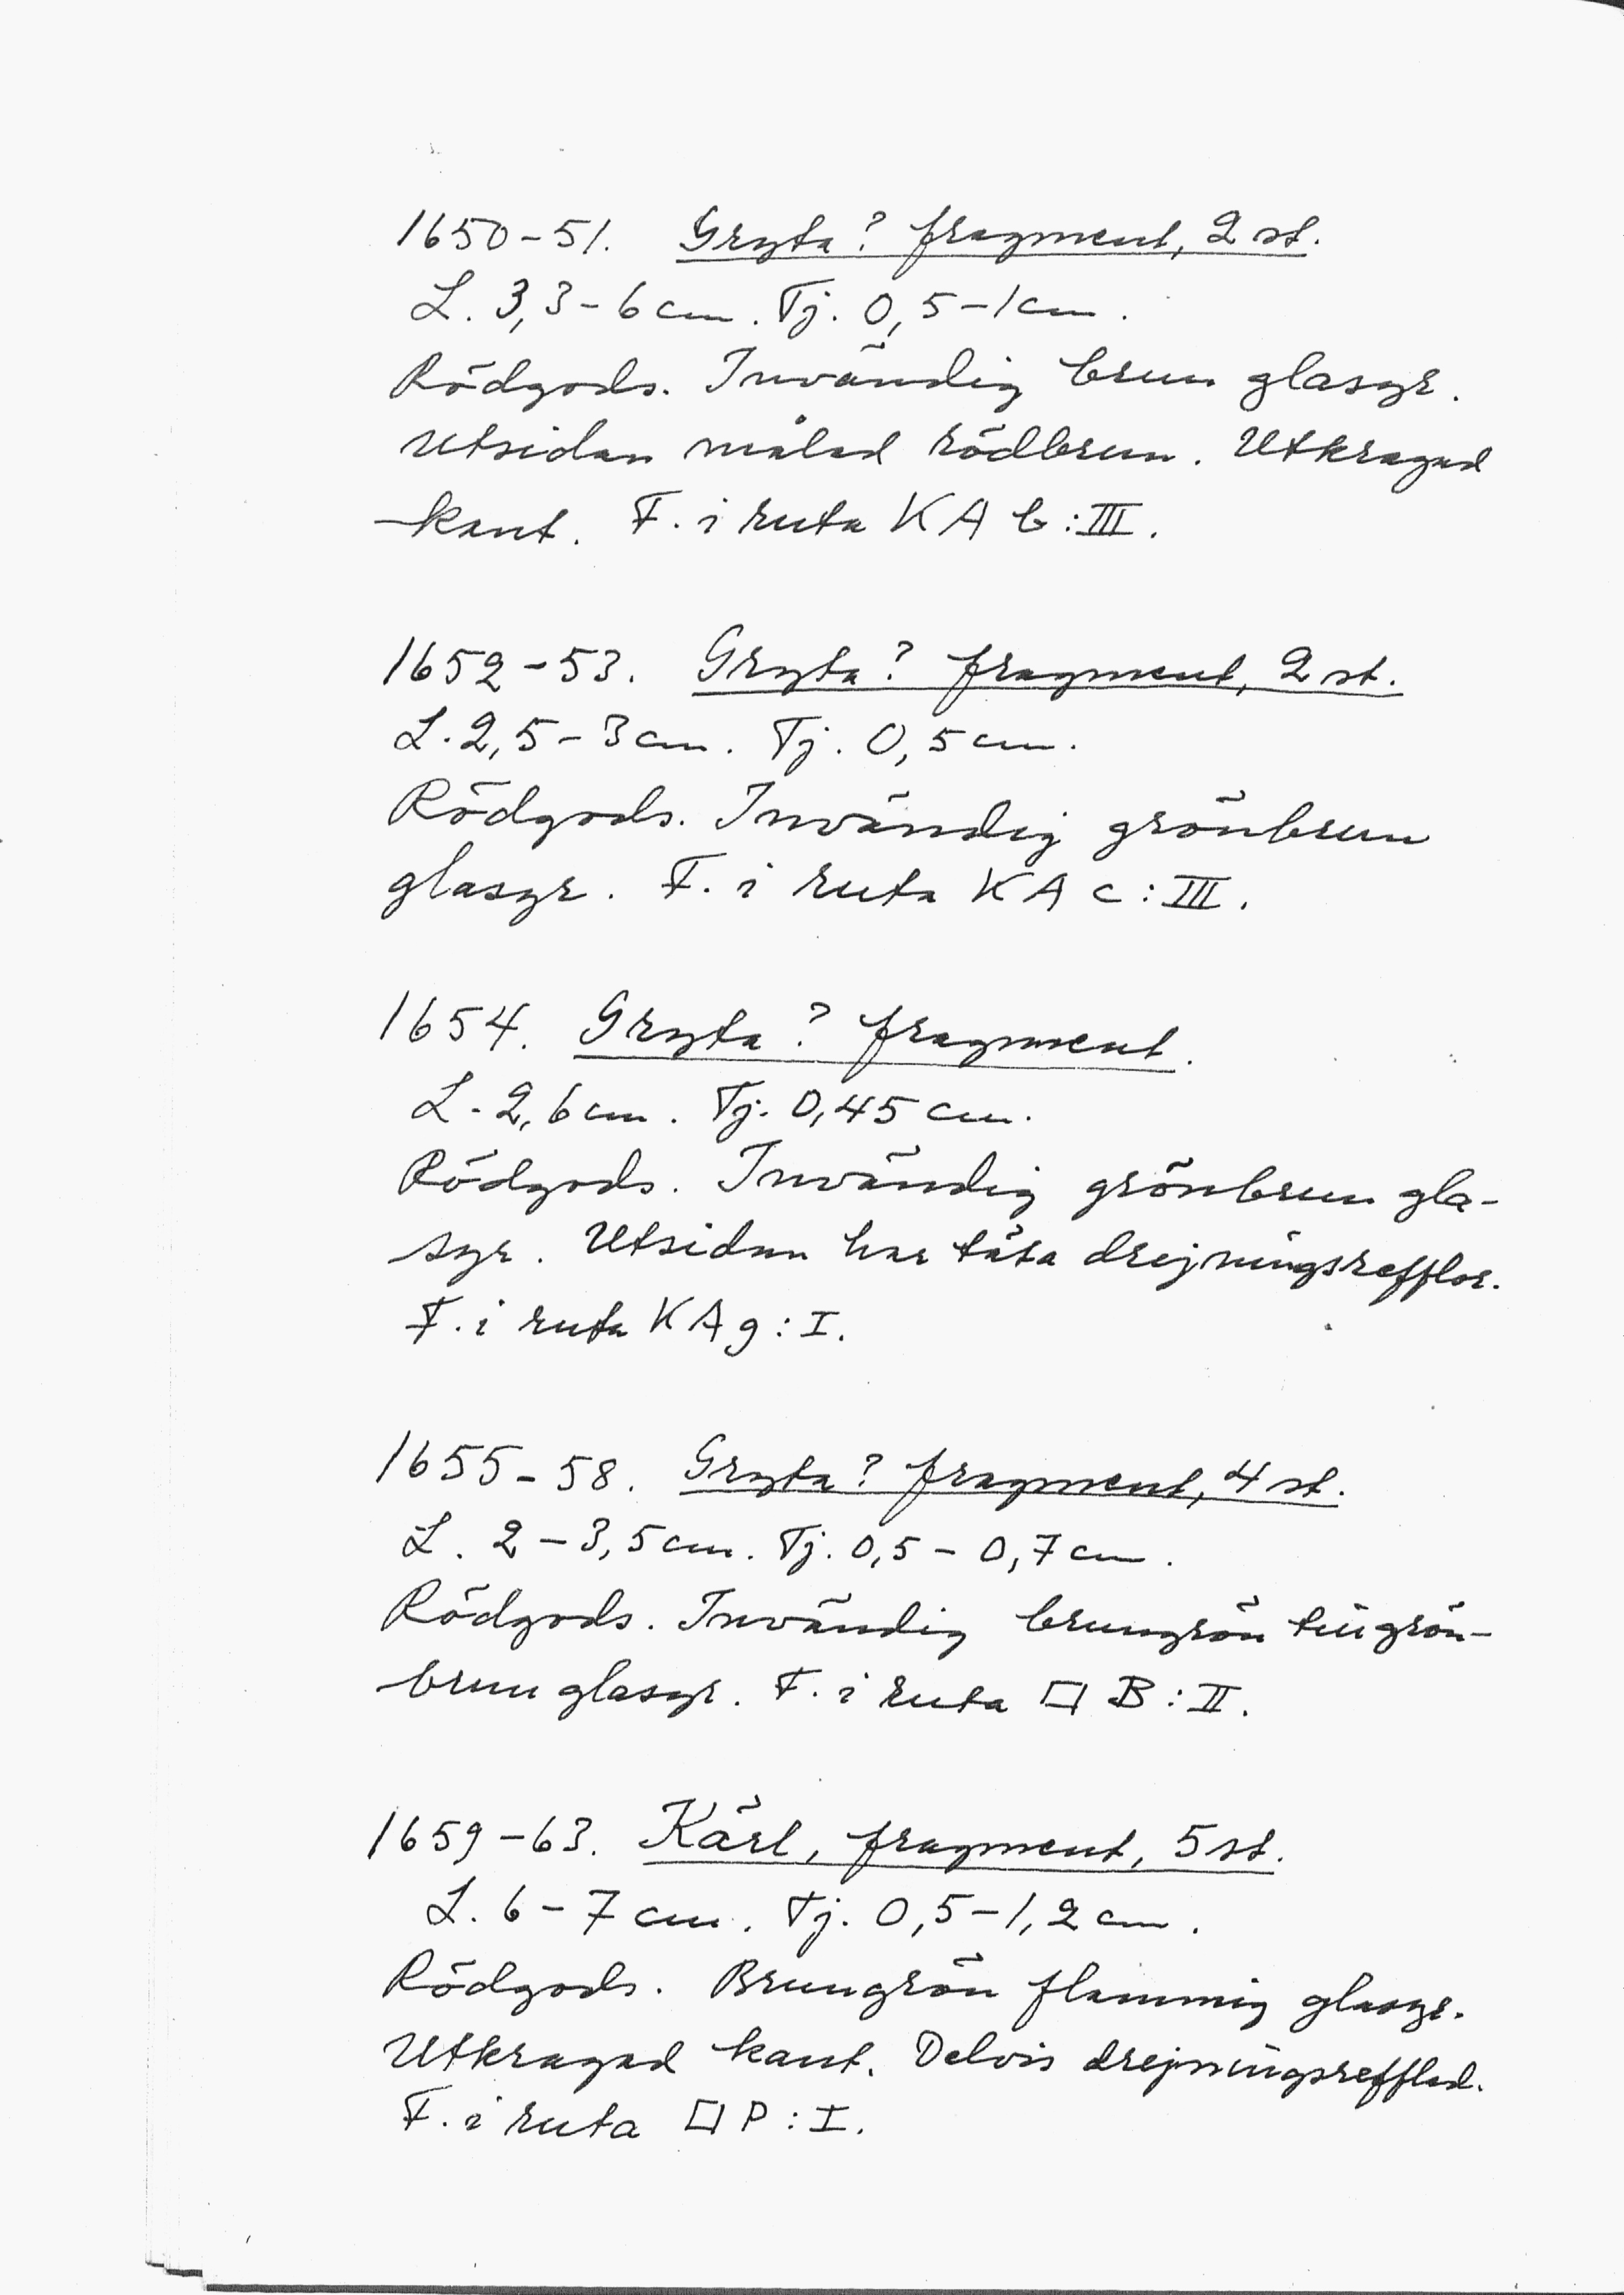 1650-51. Gryta? fragment, 2 st.
L. 3,3-6 cm. Tj. 0,5-1 cm.
Rödgods. Invändig brun glasyr.
Utsidan målad rödbrun. Utkragad
kant. F. i ruta KA b:III.
1652-53. Gryta? fragment, 2 st.
L. 2,5-3 cm. Tj. 0,5 cm.
Rödgods. Invändig grönbrun
glasyr. F. i ruta KA c:III.
1654. Gryta? fragment.
L. 2,6 cm. Tj. 0,45 cm.
Rödgods. Invändig grönbrun gla-
syr. Utsidan har täta drejningsrefflor.
F. i ruta KA g:I.
1655-58. Gryta? fragment, 4 st.
L. 2-3,5 cm. Tj. 0,5-0,7 cm.
Rödgods. Invändig brungrön till grön-
brun glasyr. F. i ruta □ B:II.
1659-63. Kärl, fragment, 5 st.
L. 6-7 cm. Tj. 0,5-1,2 cm.
Rödgods. Brungrön flammig glasyr.
Utkragad kant. Delvis drejningsrefflad.
F. i ruta □ P:I.